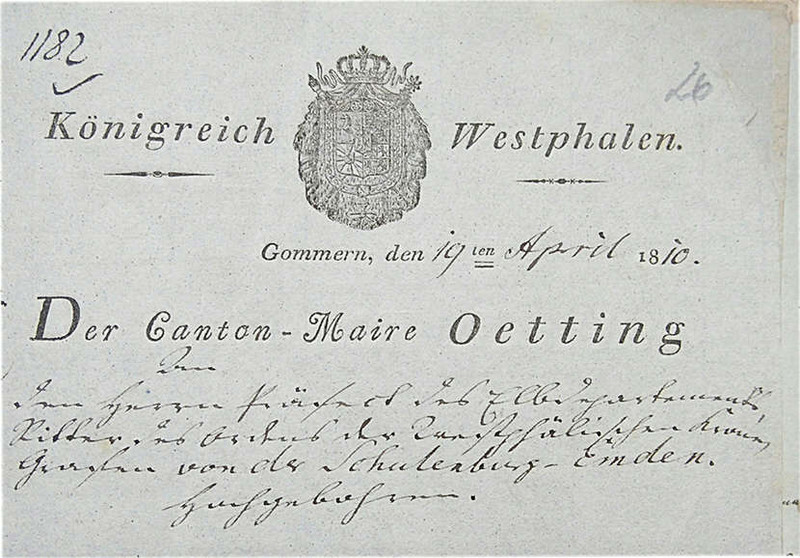 1182
26
Königreich Westphalen.
Gommern, den 19ten April 1810.
Der Canton-Maire Oetting
An
den Herrn Präfect des Elbdepartements,
Ritter des Ordens der Westphälischen Krone,
Grafen von der Schulenburg-Emden.
Hochgebohren.